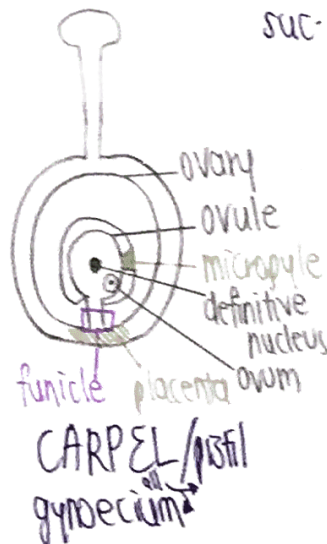 suc-
ovary
ovule
micropyle
definitive
nucleus
ovum
funicle placenta
CARPEL/pistil
all
gynoecium